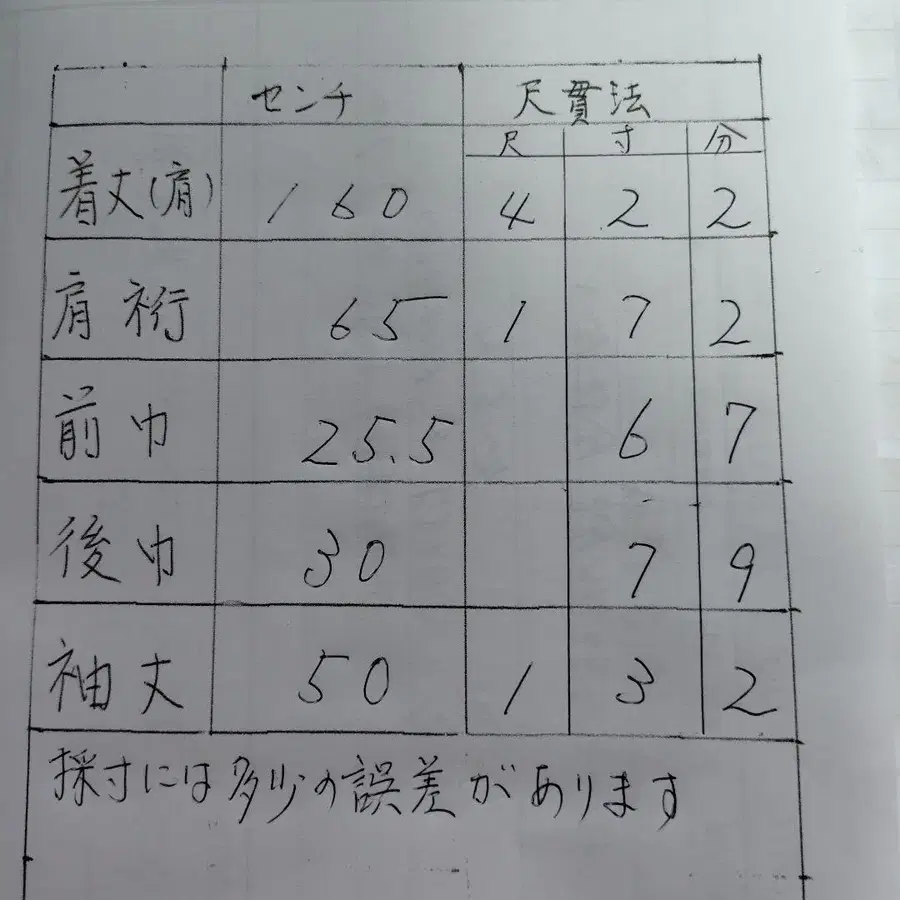 センチ 尺貫法
尺 寸 分
着丈(肩) 160 4 2 2
肩裄 65 1 7 2
前巾 25.5 6 7
後巾 30 7 9
袖丈 50 1 3 2
採寸には多少の誤差があります